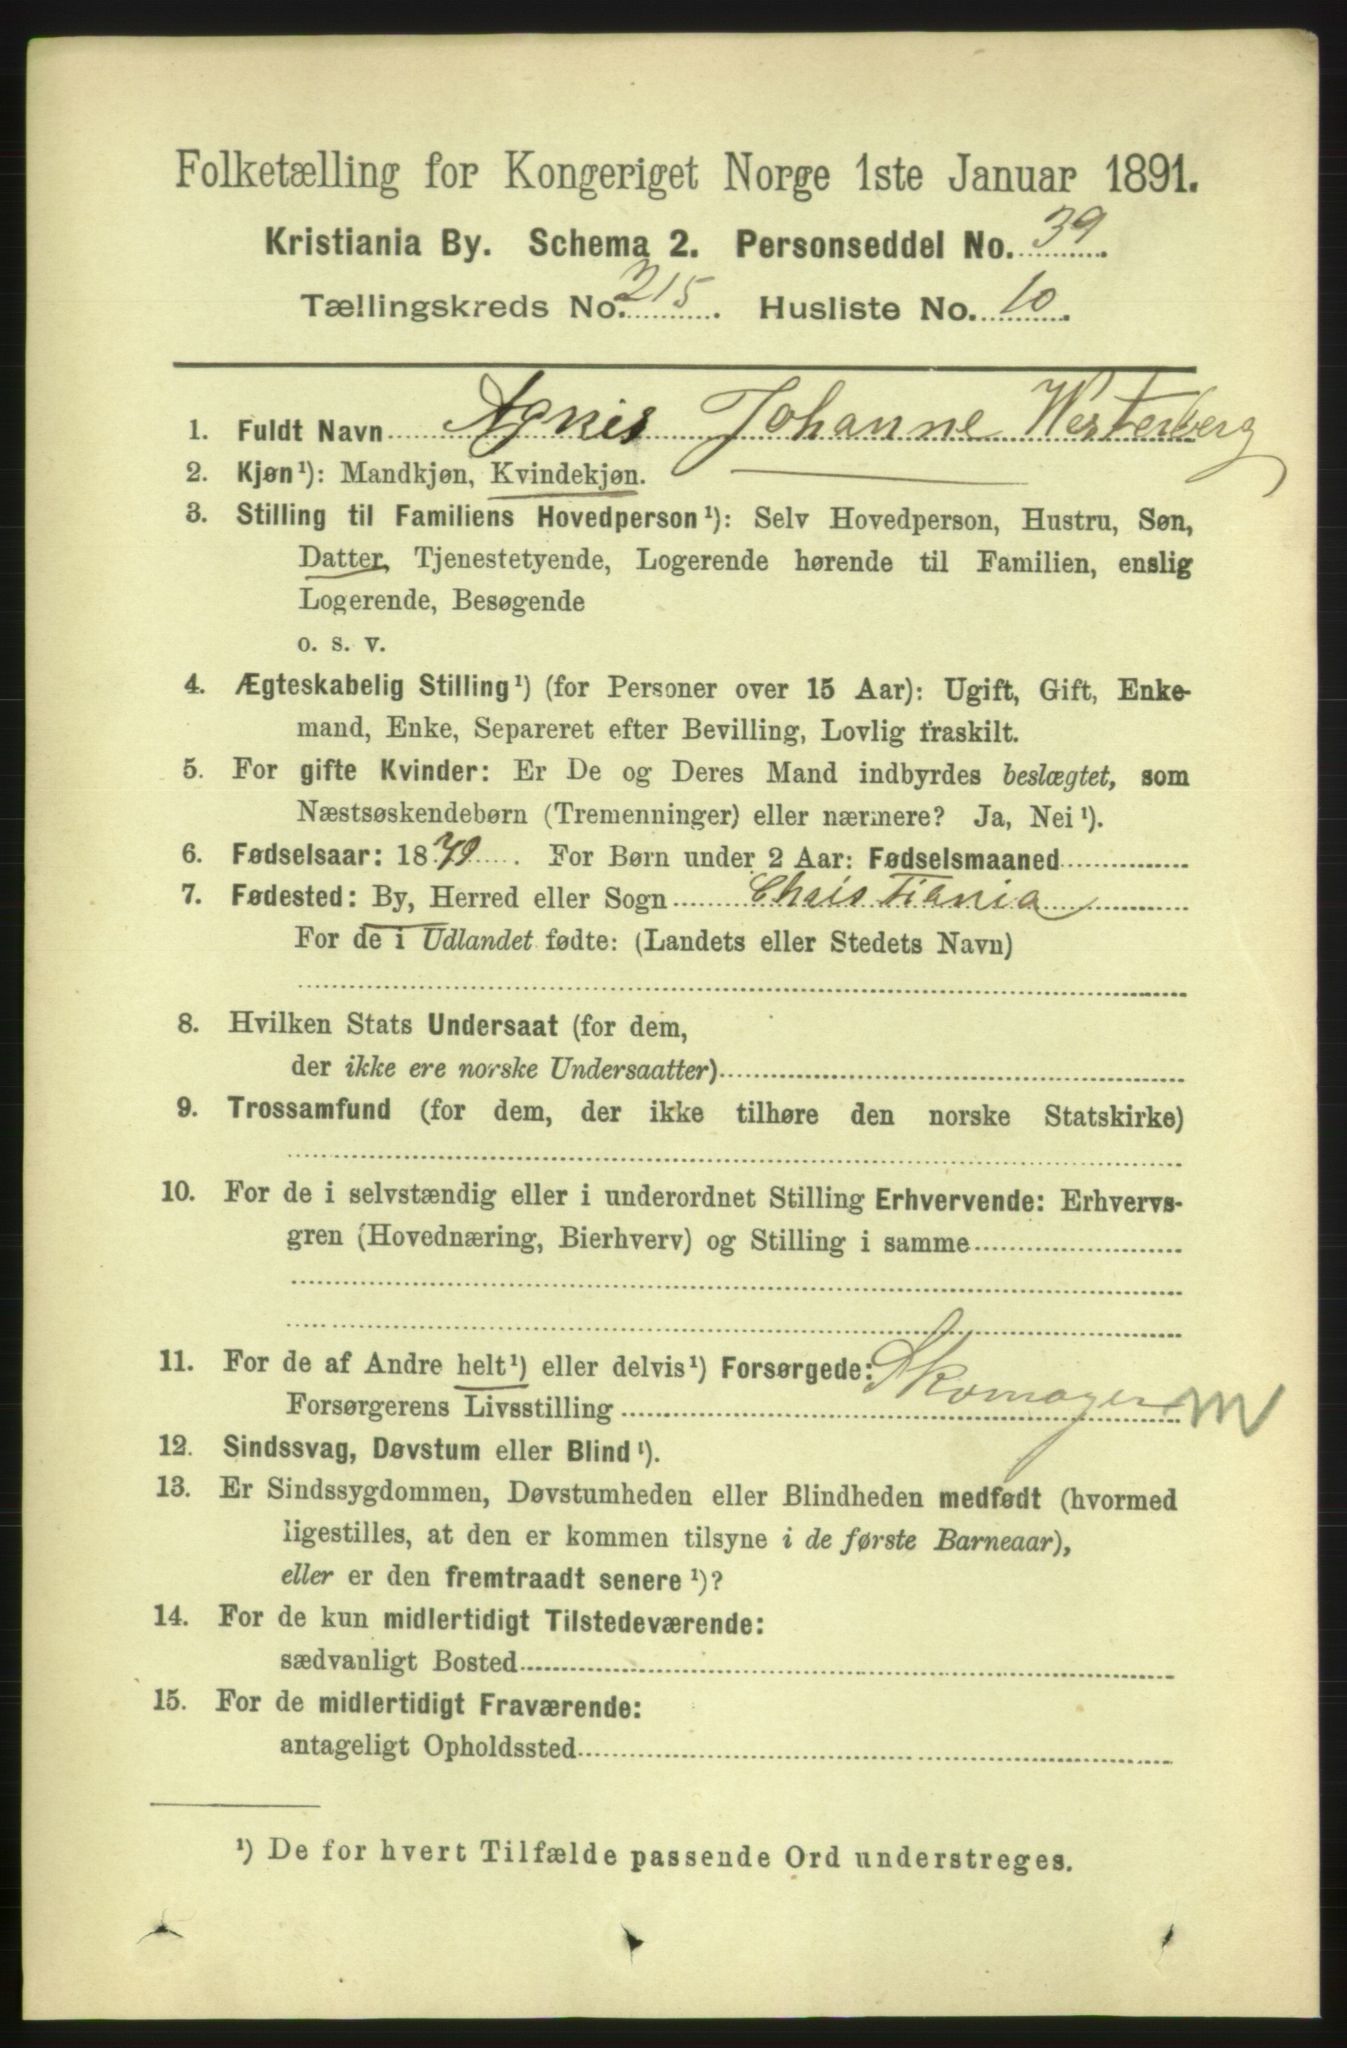 Folketælling for Kongeriget Norge 1ste Januar 1891.
Kristiania By. Schema 2. Personseddel No. 39.
Tællingskreds No. 215. Husliste No. 10.
1. Fuldt Navn Agnes Johanne Westerberg
2. Kjøn¹): Mandkjøn, Kvindekjøn.
3. Stilling til Familiens Hovedperson¹): Selv Hovedperson, Hustru, Søn,
Datter, Tjenestetyende, Logerende hørende til Familien, enslig
Logerende, Besøgende
o. s. v.
4. Ægteskabelig Stilling¹) (for Personer over 15 Aar): Ugift, Gift, Enke-
mand, Enke, Separeret efter Bevilling, Lovlig fraskilt.
5. For gifte Kvinder: Er De og Deres Mand indbyrdes beslægtet, som
Næstsøskendebørn (Tremenninger) eller nærmere? Ja, Nei¹).
6. Fødselsaar: 1879. For Børn under 2 Aar: Fødselsmaaned
7. Fødested: By, Herred eller Sogn Christiania
For de i Udlandet fødte: (Landets eller Stedets Navn)
8. Hvilken Stats Undersaat (for dem,
der ikke ere norske Undersaatter)
9. Trossamfund (for dem, der ikke tilhøre den norske Statskirke)
10. For de i selvstændig eller i underordnet Stilling Erhvervende: Erhvervs-
gren (Hovednæring, Bierhverv) og Stilling i samme
11. For de af Andre helt¹) eller delvis¹) Forsørgede:
Forsørgerens Livsstilling Skomager m
12. Sindssvag, Døvstum eller Blind¹).
13. Er Sindssygdommen, Døvstumheden eller Blindheden medfødt (hvormed
ligestilles, at den er kommen tilsyne i de første Barneaar),
eller er den fremtraadt senere¹)?
14. For de kun midlertidigt Tilstedeværende:
sædvanligt Bosted
15. For de midlertidigt Fraværende:
antageligt Opholdssted
¹) De for hvert Tilfælde passende Ord understreges.